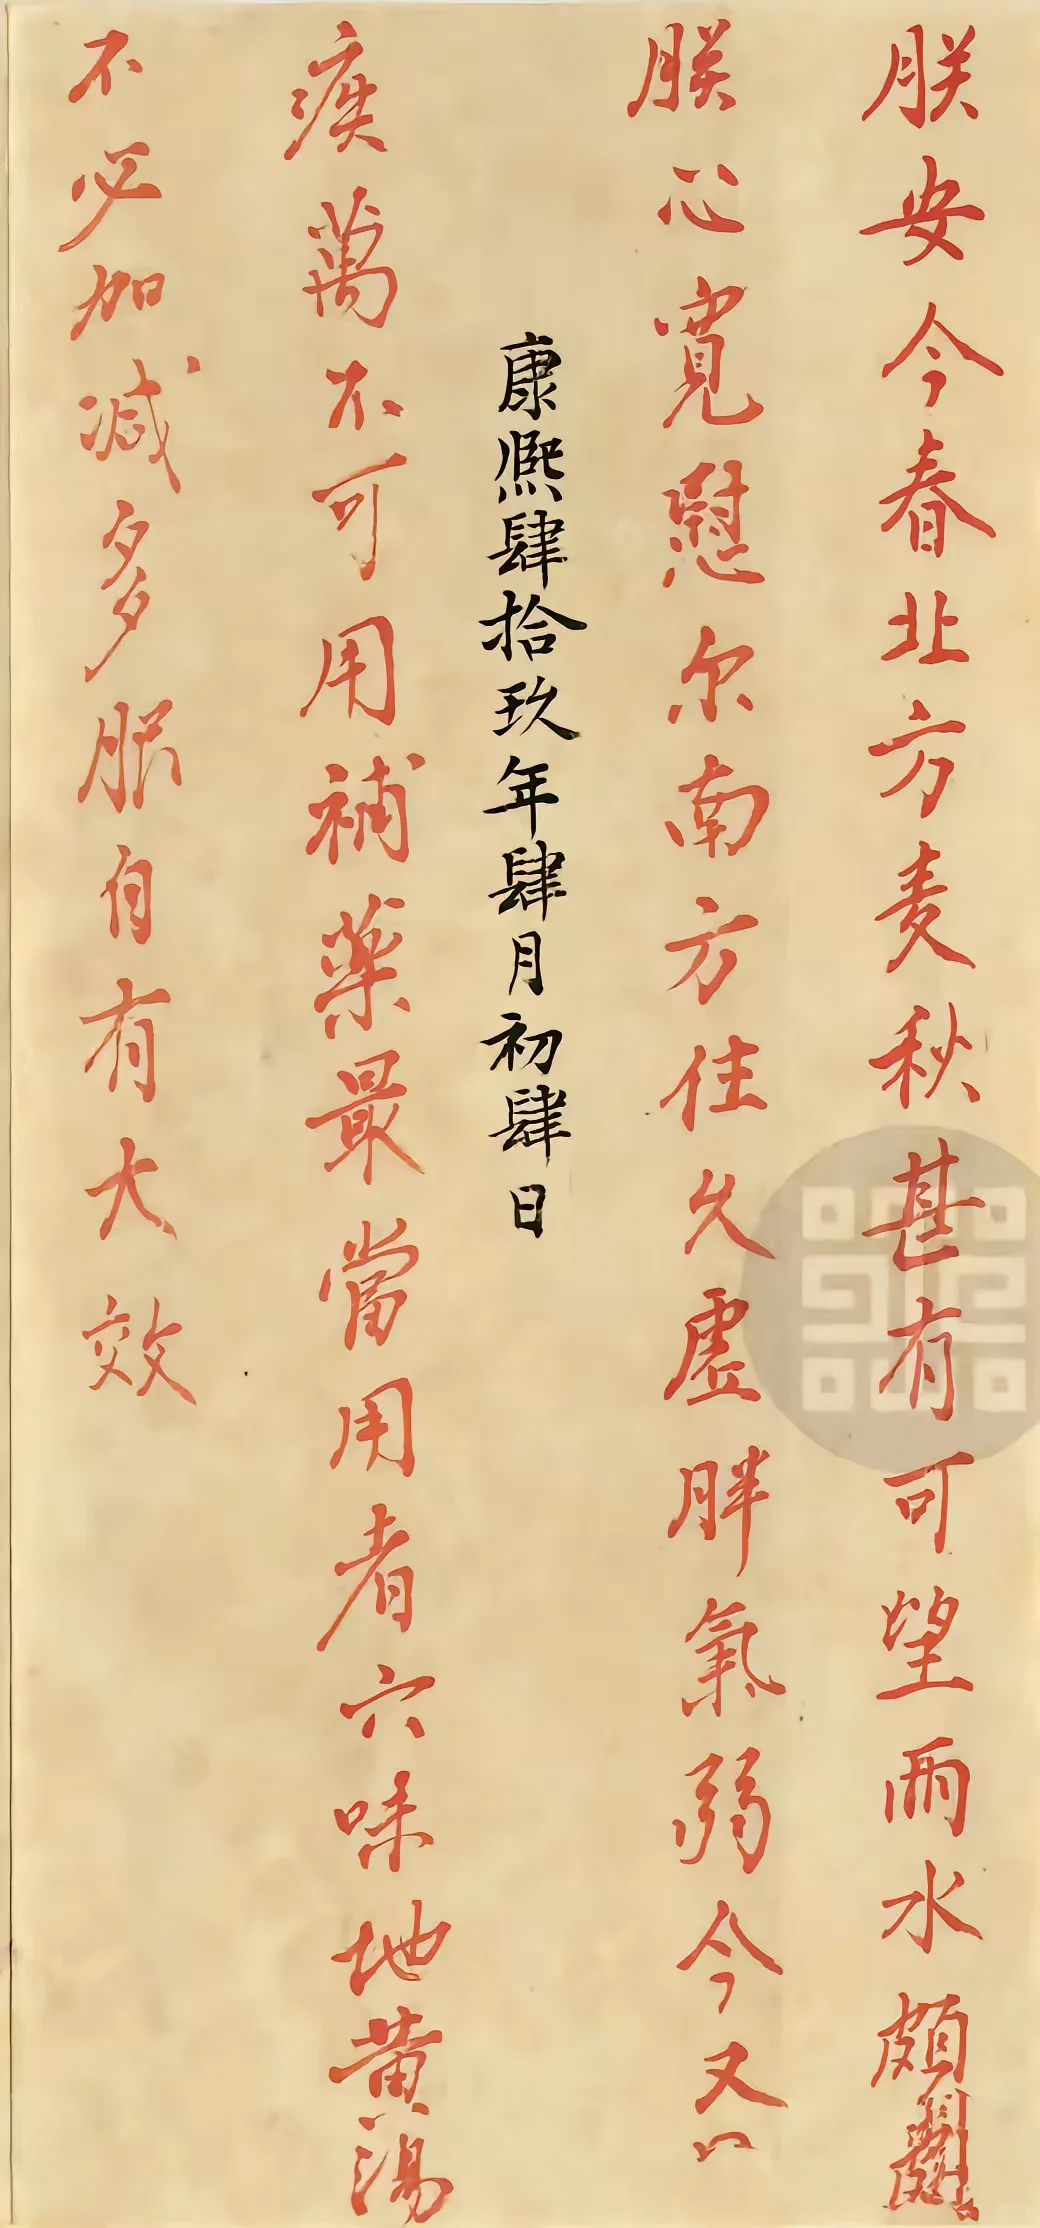 朕安今春北方麦秋甚有可望雨水頗
朕心寬慰尔南方住久虛胖氣弱今又
康熙肆拾玖年肆月初肆日
瘊萬不可用補藥最當用者六味地黄湯
不必加减多服自有大效